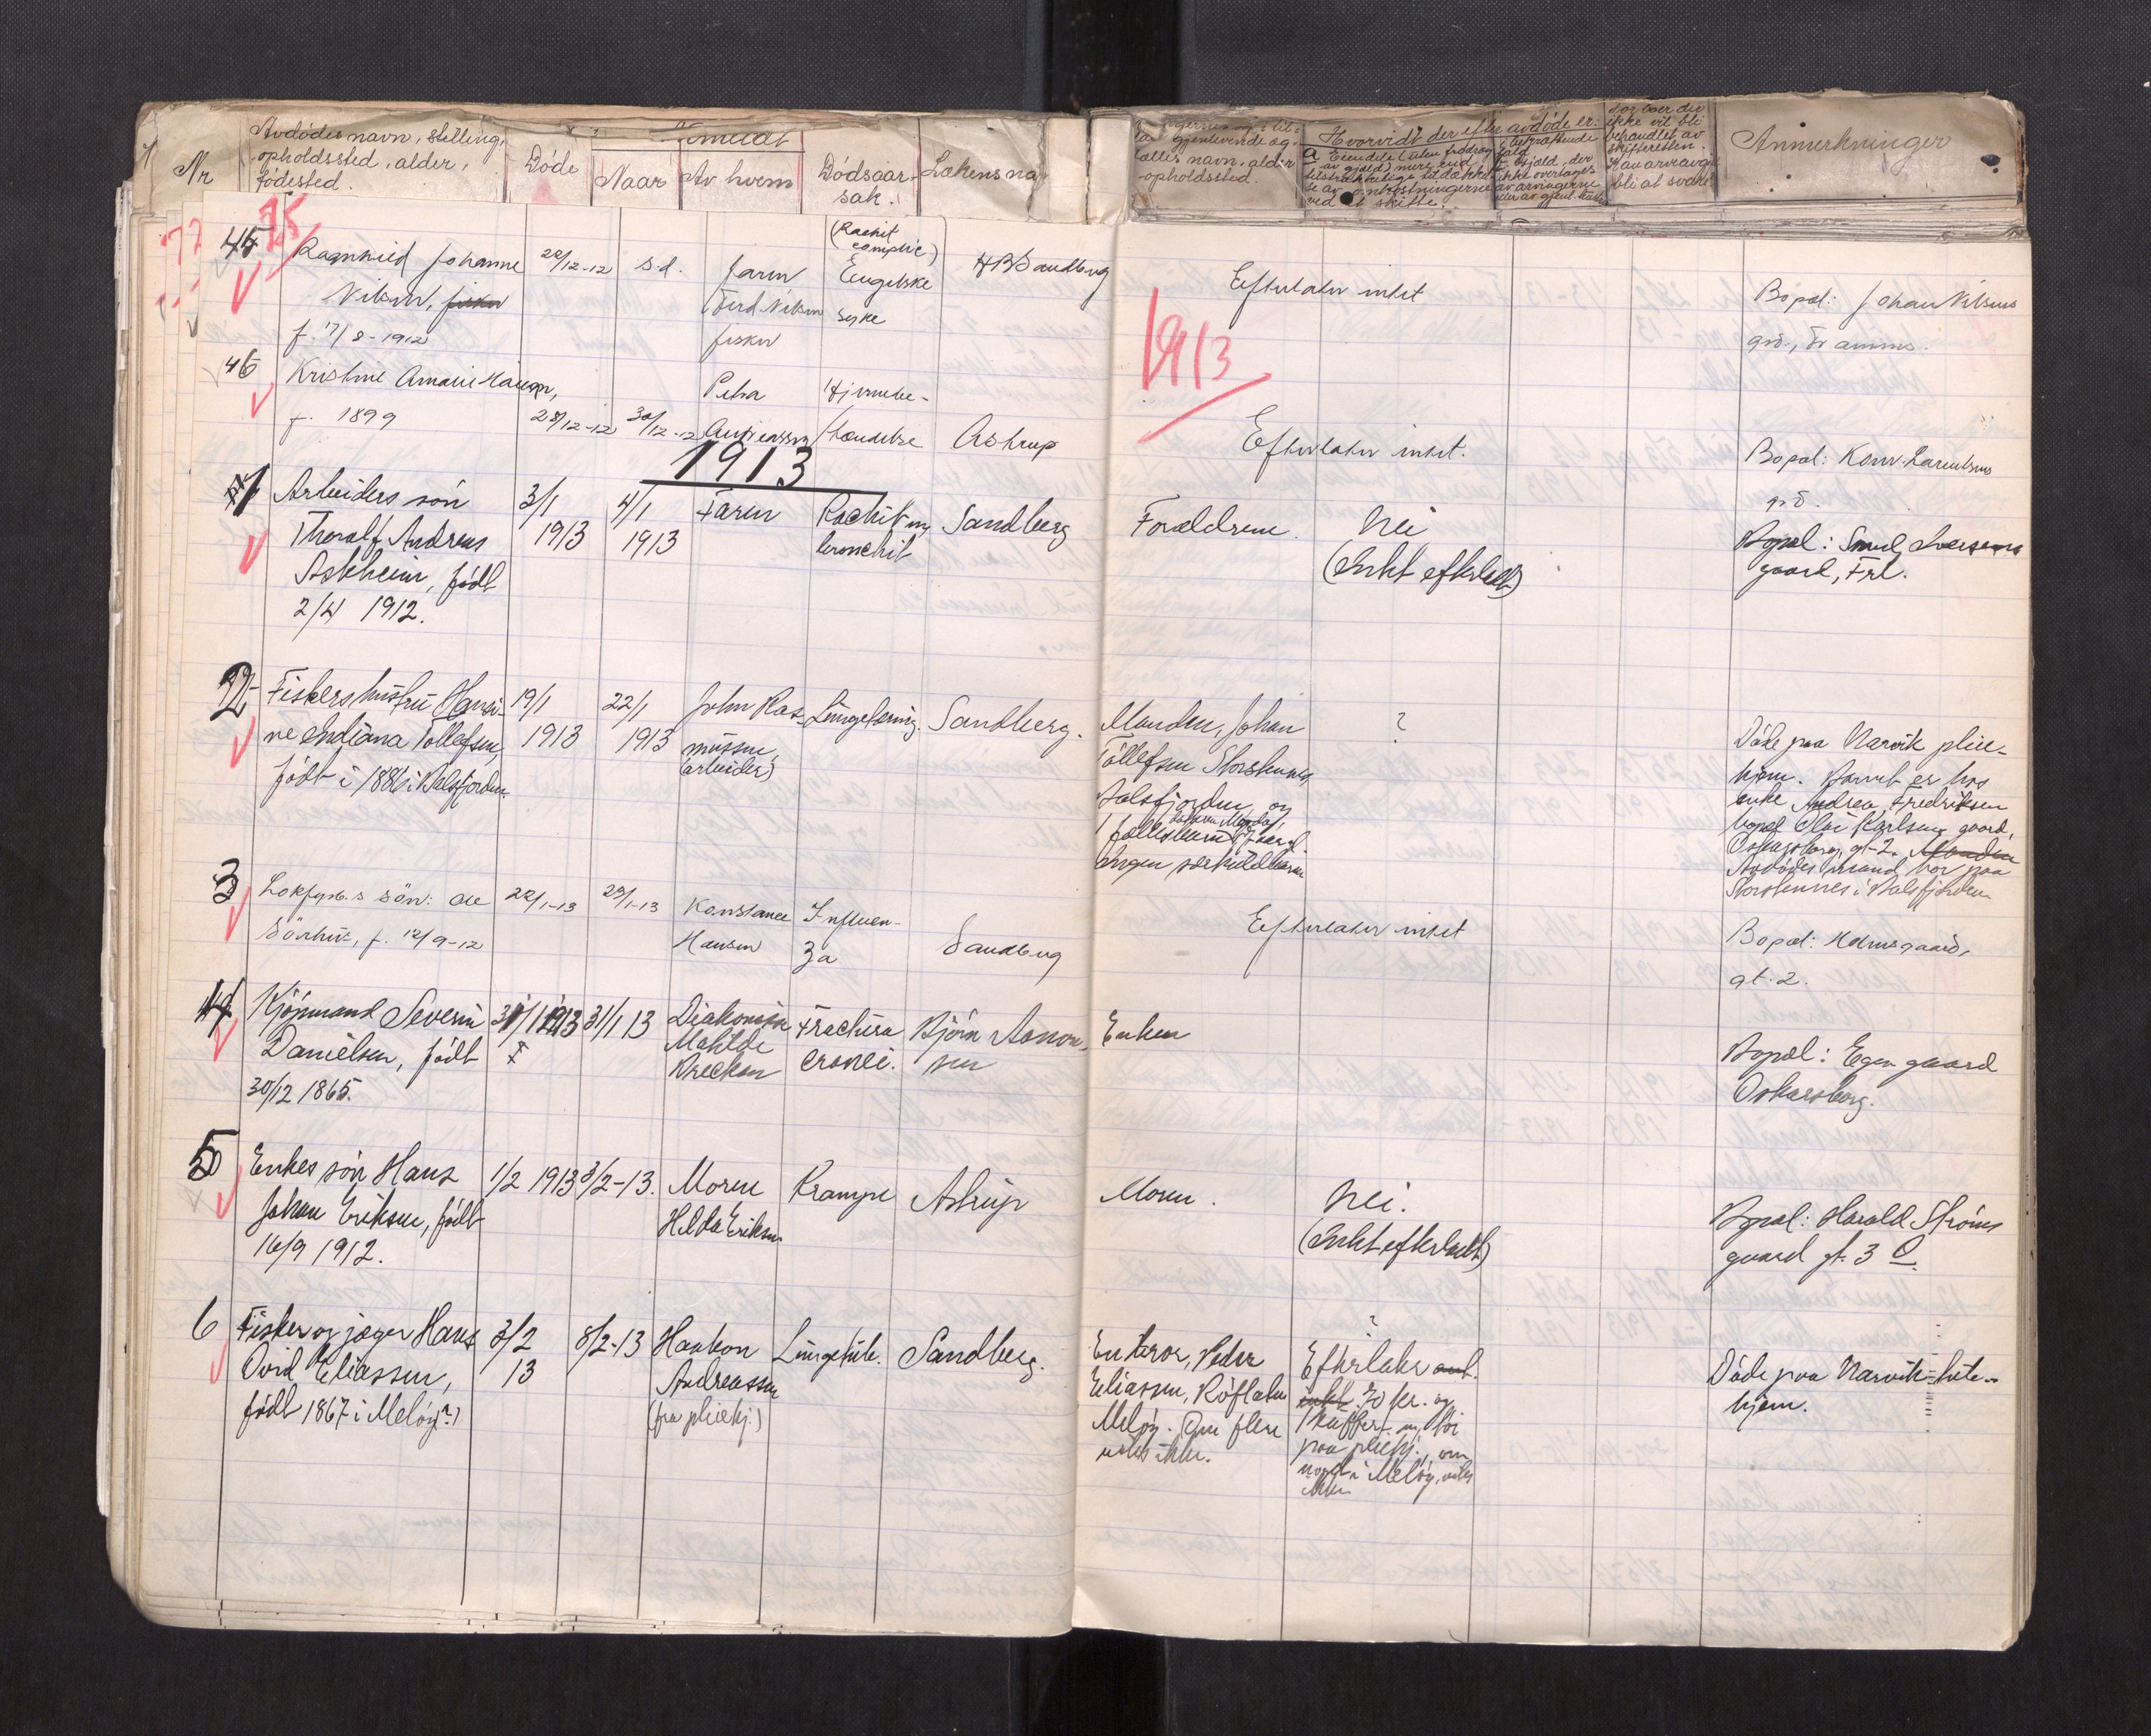 Nr
Avdödes navn, stilling,
opholdssted, alder,
födested.
Döde
Anmeldt
Naar
Av hvem
Dödsaar-
sak.
Lækens na
gjenlevende æg-
tefælles navn, alder
opholdssted.
Hvorvidt der efter avdöde er:
ved at skifte.
ikke vil bli
behandlet av
skifteretten.
bli at svare
Anmerkninger
45
Ragnhild Johanne
Nilsen, fisker
f. 17/8-1912
28/12-12
s.d.
Faren
Ferd. Nilsen
fisker
(Rachit
complic)
Engelske
syke
H B Sandberg
Efterlater intet
Bopæl: Johan Nilsens
grd., Framnes.
1913
46
Kristine Amalie Hansen,
f. 1899
28/12-12
30/12-12
Petra
Andreassen
Hjernebe-
tændelse
Astrup
Efterlater intet.
Bopæl: Konr. Larentsens
grd.
1913
1
Arbeiders sön
Thoralf Andreas
Askheim, födt
2/4 1912.
3/1
1913
4/1
1913
Faren
Rachit og
bronchit
Sandberg
Forældrene.
Nei
(Intet efterladt)
Bopæl: Smed Iversens
gaard, Frl.
2
Fiskers hustru Hansi-
ne Indiana Tollefsen,
födt i 1886 i Balsfjorden.
19/1
1913
22/1
1913
John Ras-
mussen,
(arbeider)
Lungetæring.
Sandberg.
Manden, Johan
Tollefsen Storstennes,
Balsfjorden og
1 fællesbarn
Ingen særkuldbarn
?
Döde paa Narvik pleie-
hjem. Barnet er hos
enke Andrea Fredriksen
bopæl Olai Karlsens gaard,
Oskarsborg, gt-2. Manden
Avdödes mand bor paa
Storstennes i Balsfjorden
3
Lokfyrb.s sön: Ole
Sörhus, f. 12/9-12
28/1-13
29/1-13
Konstance
Hansen
Influen-
za
Sandberg
Efterlater intet
Bopæl: Holmsgaard,
gt. 2.
4
Kjöpmand Severin
Danielsen, födt
30/12 1865.
31/1 1913
31/1 13
Diakonisse
Mathilde
Breckan
Fractura
cranei.
Björn Aanon-
sen
Enken
Bopæl: Egen gaard
Oskarsborg.
5
Enkes sön Hans
Johan Eriksen, födt
16/9 1912.
1/2 1913
3/2-13.
Moren
Hilda Eriksen
Krampe
Astrup
Moren.
Nei.
(Intet efterladt)
Bopæl: Harald Ströms
gaard gt. 3
6
Fisker og jæger Hans
Ovid Eliassen,
födt 1867 i Melöy(?)
3/2
13
8/2-13
Haakon
Andreassen
(fra pleiehj.)
Lungetub.
Sandberg.
En bror, Peder
Eliassen, Röflaten
Melöy. Om flere
vites ikke.
?
Efterlater ant.
intet 70 kr. og
1 kuffert m. töi
paa pleiehj., om
noget i Melöy, vites
ikke
Döde paa Narvik pleie-
hjem.